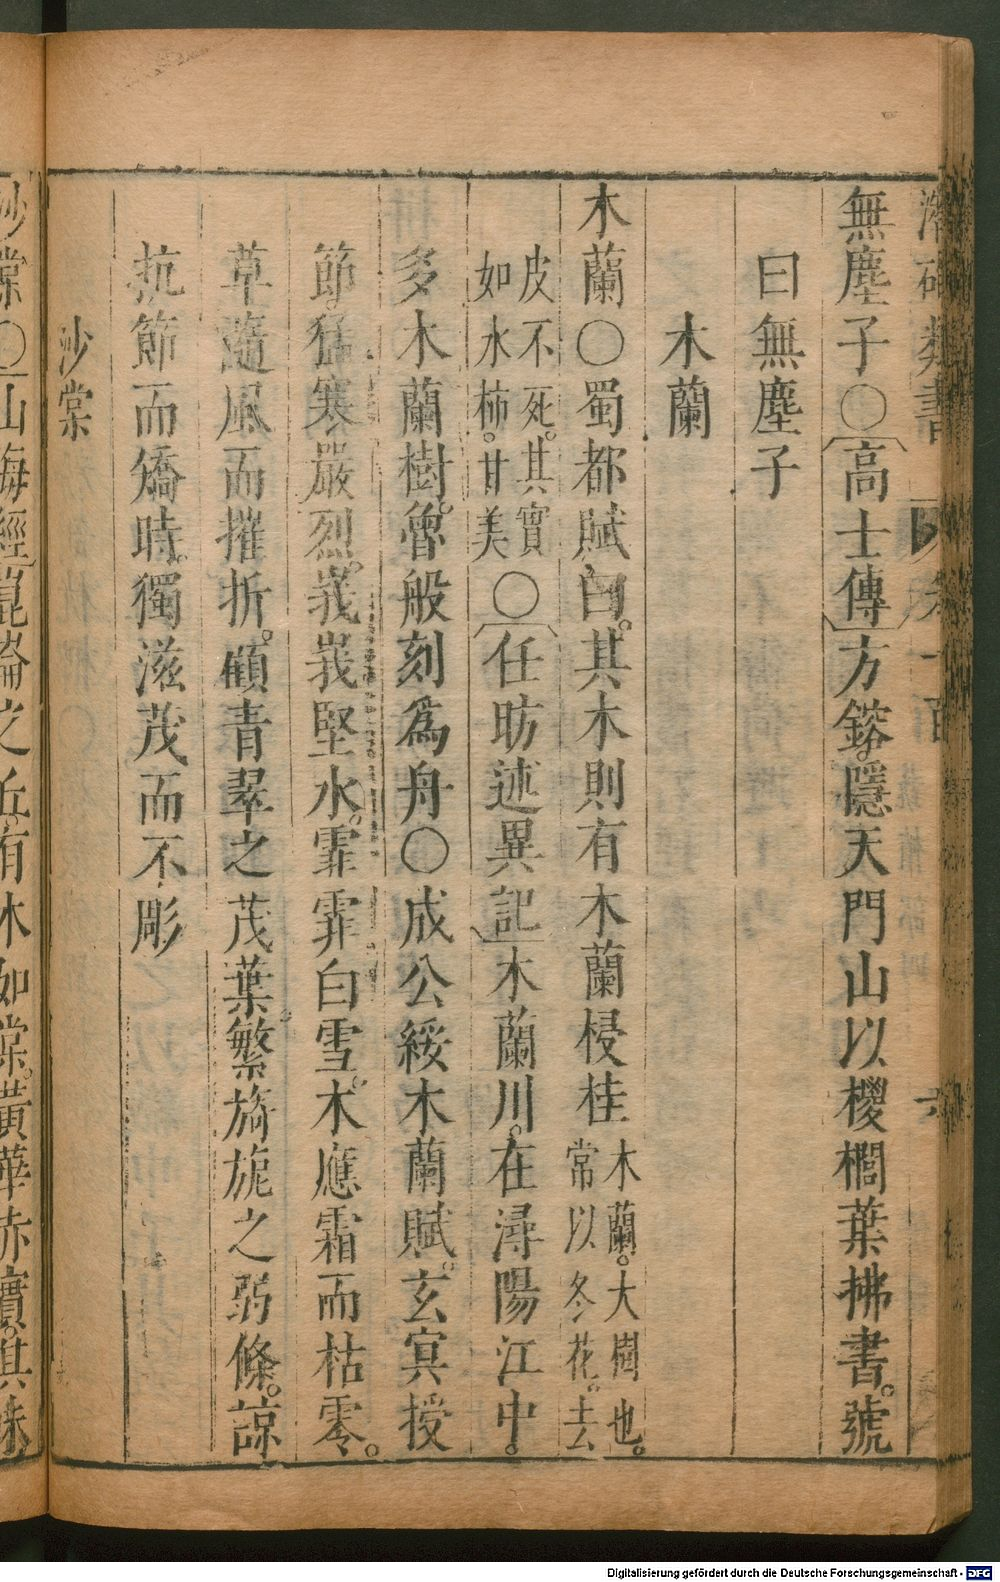 潛確類書　卷一百　六
無塵子○高士傳方鎔。隱天門山以椶櫚葉拂書。號
曰無塵子
木蘭
木蘭○蜀都賦曰。其木則有木蘭梫桂木蘭。大樹也。
常以冬花。去
皮不死。其實
如水柿。甘美○任昉述異記木蘭川。在潯陽江中。
多木蘭樹。魯般刻爲舟○成公綏木蘭賦。玄冥授
節。猛寒嚴烈。峩峩堅氷。霏霏白雪。木應霜而枯零。
草隨風而摧折。顧青翠之茂葉繁旖旎之弱條。諒
抗節而矯時。獨滋茂而不彫
沙棠
沙棠○山海經崑崙之丘有木如棠。黃華赤實。其味
Digitalisierung gefördert durch die Deutsche Forschungsgemeinschaft - DFG